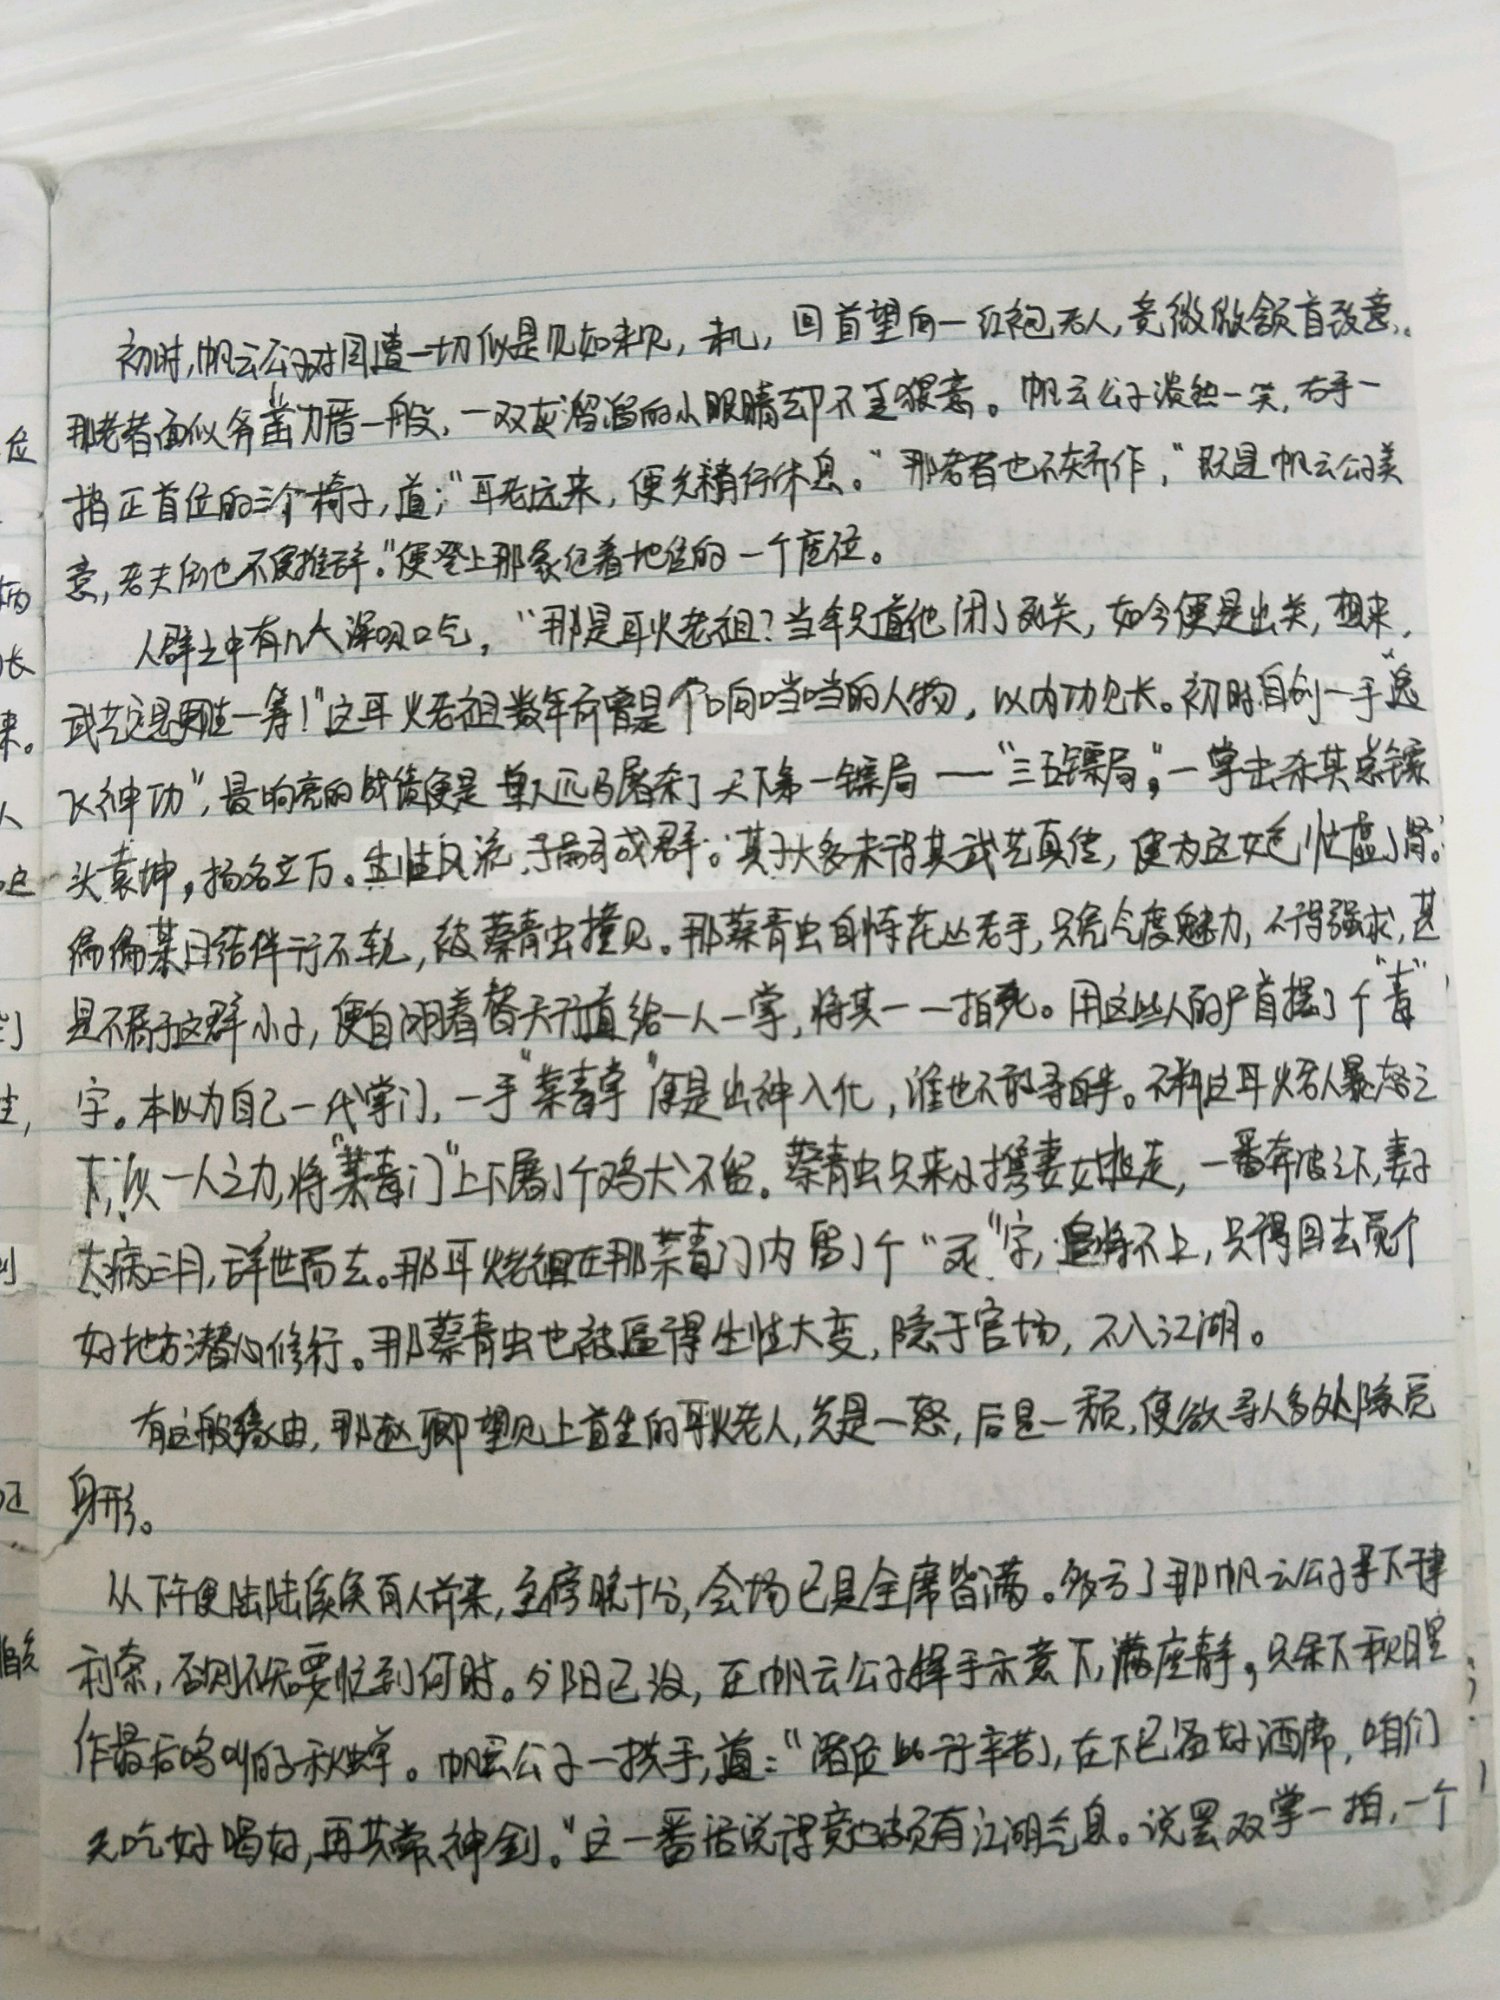 初时，帆云公子对周遭一切似是见如未见，未几，回首望向一红袍老人，竟微微颔首致意。
那老者面似斧凿刀凿一般，一双灰溜溜的小眼睛却不呈猥意。帆云公子淡然一笑，右手一
指正首位的三个椅子，道：“耳老远来，便先稍行休息。”那老者也不矫作，“既是帆云公子美
意，老夫倒也不便推辞。”便登上那象征着地位的一个座位。
人群之中有几人深吸口气，“那是耳火老祖？当年只道他闭了死关，如今便是出关，想来，
武艺定是更胜一筹！”这耳火老祖数年前曾是个响当当的人物，以内功见长。初时自创一手“逸
飞神功”，最响亮的战绩便是单人匹马屠杀了天下第一镖局——“三五镖局”，一掌击杀其总镖
头袁坤，扬名立万。生性风流，子嗣成群。其子大多未得其武艺真传，便为这女色忙虚了肾。
偏偏某日结伴行不轨，被蔡青虫撞见。那蔡青虫自恃花丛老手，只凭个人魅力，不得强求，甚
是不屑于这群小子，便自诩着替天行道给一人一掌，将其一一拍死。用这些人的尸首摆了个“毒”
字。本以为自己一代掌门，一手“菜毒掌”便是出神入化，谁也不敢寻自身。不料这耳火老人暴怒之
下，以一人之力，将“菜毒门”上下屠了个鸡犬不留。蔡青虫只来及携妻女逃走，一番奔波之下，妻子
大病三月，辞世而去。那耳火老祖在那菜毒门内留了个“死”字，追将不上，只得回去觅个
好地方潜心修行。那蔡青虫也被逼得生性大变，隐于官场，不入江湖。
有这般缘由，那赵卿望见上首坐的耳火老人，先是一怒，后是一颓，便欲寻人多处隐匿
身形。
从下午便陆陆续续有人前来，至傍晚十分，会场已是全席皆满。多亏了那帆云公子手下手
利索，否则不知要忙到何时。夕阳已没，在帆云公子挥手示意下，满座静，只余下秋日里
作最后鸣叫的秋蝉。帆云公子一拱手，道：“诸位此行辛苦，在下已备好酒席，咱们
先吃好喝好，再共赏神剑。”这一番话说得竟也颇有江湖气息。说罢双掌一拍，一个